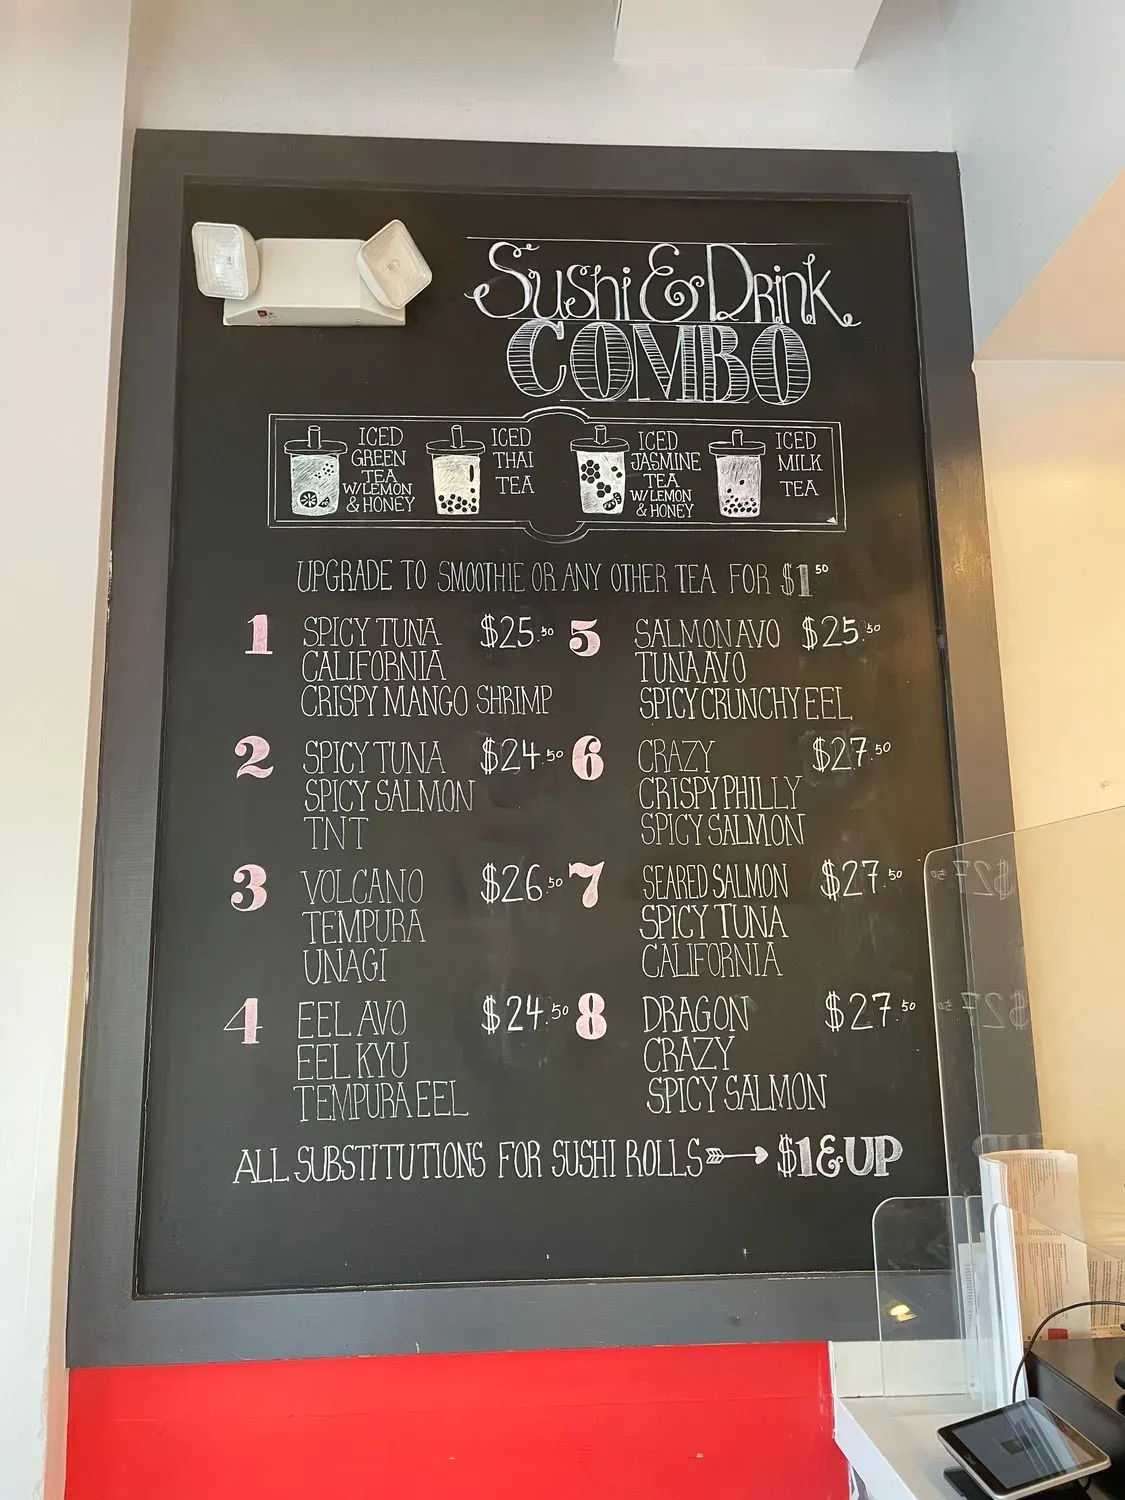 Sushi & Drink
COMBO
ICED
GREEN
TEA
W/LEMON
& HONEY
ICED
THAI
TEA
ICED
JASMINE
TEA
W/LEMON
& HONEY
ICED
MILK
TEA
UPGRADE TO SMOOTHIE OR ANY OTHER TEA FOR $1 50
1 SPICY TUNA $25.50
CALIFORNIA
CRISPY MANGO SHRIMP
2 SPICY TUNA $24.50
SPICY SALMON
TNT
3 VOLCANO $26.50
TEMPURA
UNAGI
4 EEL AVO $24.50
EEL KYU
TEMPURA EEL
5 SALMON AVO $25.50
TUNA AVO
SPICY CRUNCHY EEL
6 CRAZY $27.50
CRISPY PHILLY
SPICY SALMON
7 SEARED SALMON $27.50
SPICY TUNA
CALIFORNIA
8 DRAGON $27.50
CRAZY
SPICY SALMON
ALL SUBSTITUTIONS FOR SUSHI ROLLS $1 & UP